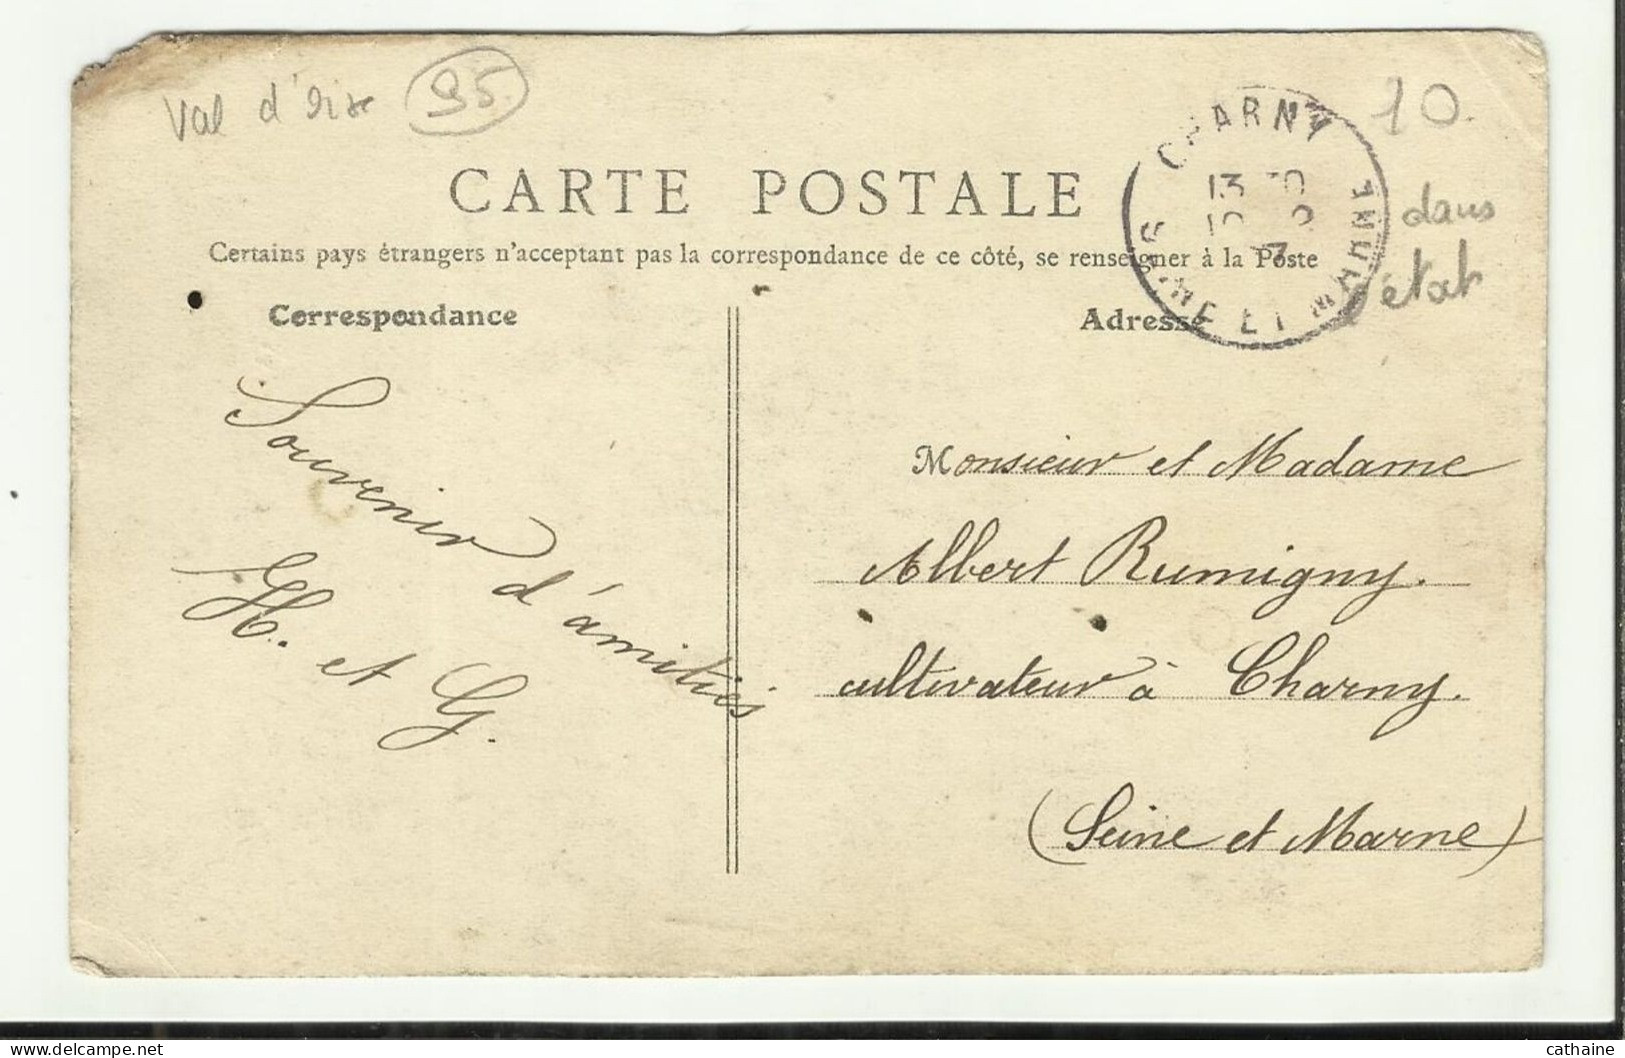 Val d'Oise 95
10
CARTE POSTALE
dans
l'état
Certains pays étrangers n'acceptant pas la correspondance de ce côté, se renseigner à la Poste
CHARNY
13 30
SEINE ET MARNE
Correspondance
Souvenir d'amitiés
H. et G.
Adresse
Monsieur et Madame
Albert Rumigny.
cultivateur à Charny.
(Seine et Marne)
cathaine